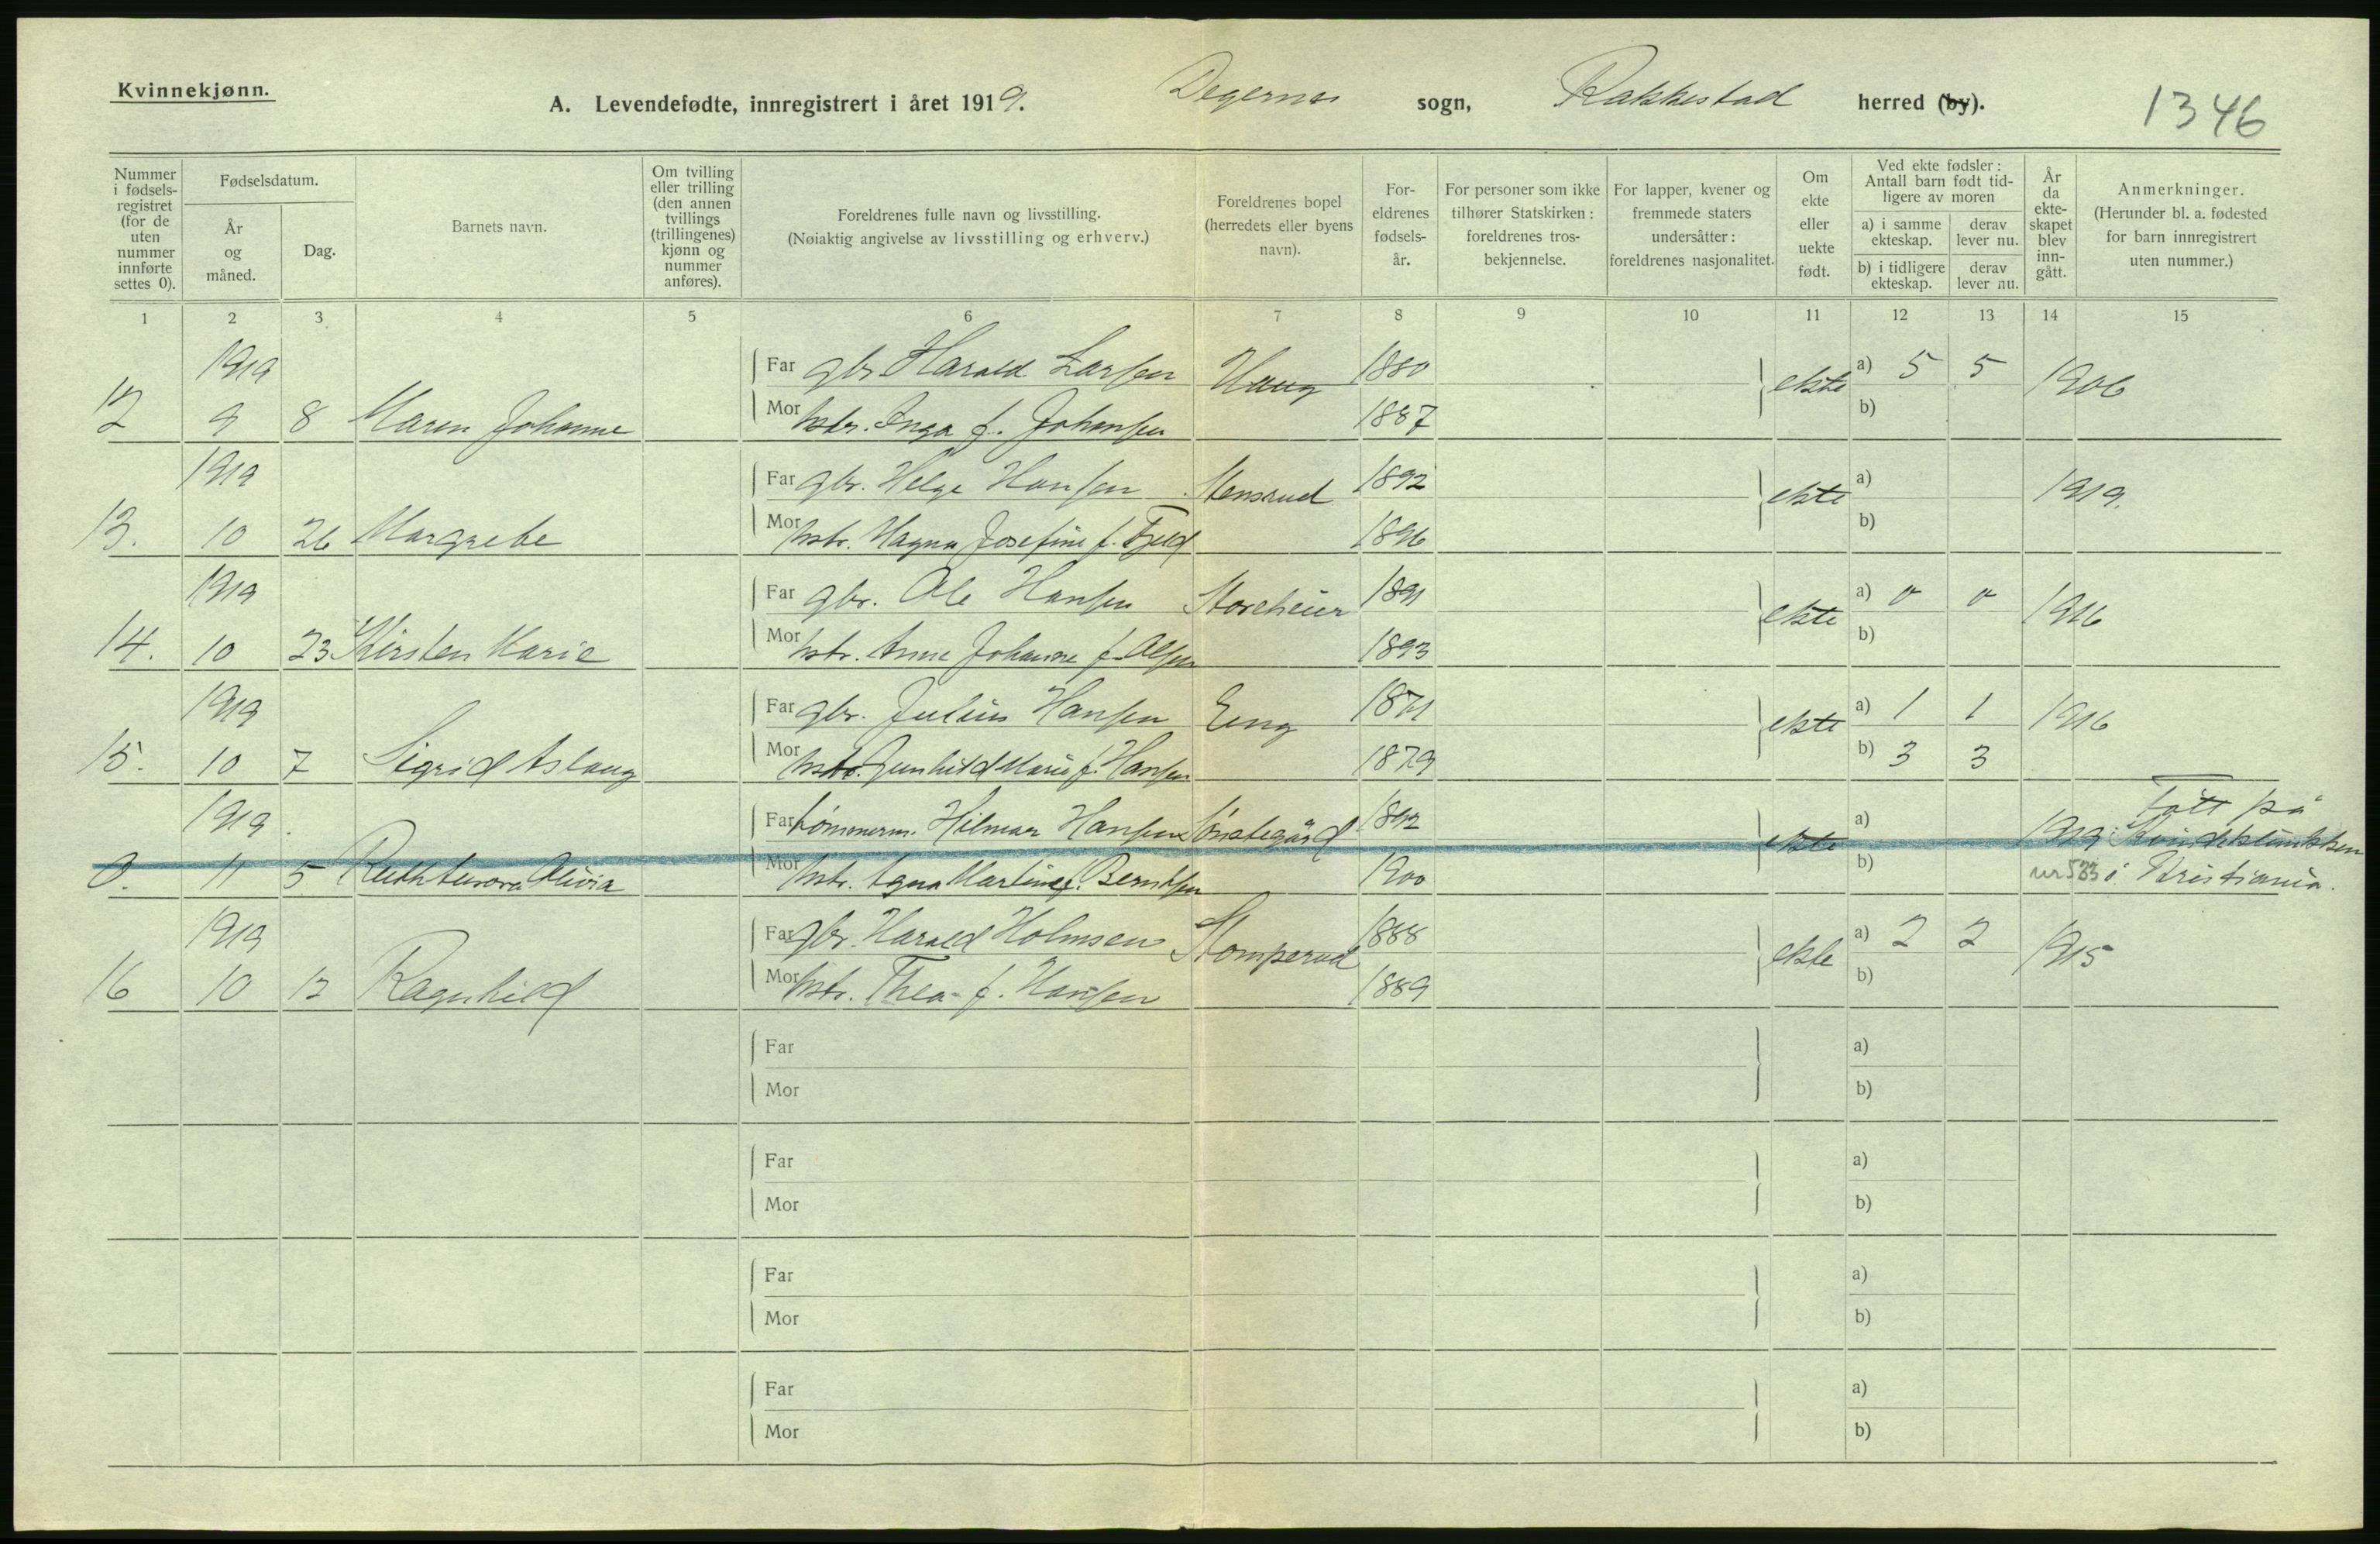 Kvinnekjønn.
A. Levendefødte, innregistrert i året 1919. Degernes sogn, Rakkestad herred (by).
1346
Nummer i fødsels-registret (for de uten nummer innførte settes 0).
Fødselsdatum.
År og måned.
Dag.
Barnets navn.
Om tvilling eller trilling (den annen tvillings (trillingenes) kjønn og nummer anføres).
Foreldrenes fulle navn og livsstilling.
(Nøiaktig angivelse av livsstilling og erhverv.)
Foreldrenes bopel (herredets eller byens navn).
For-eldrenes fødsels-år.
For personer som ikke tilhører Statskirken: foreldrenes tros-bekjennelse.
For lapper, kvener og fremmede staters undersåtter: foreldrenes nasjonalitet.
Om ekte eller uekte født.
Ved ekte fødsler: Antall barn født tid-ligere av moren
a) i samme ekteskap.
derav lever nu.
b) i tidligere ekteskap.
derav lever nu.
År da ekte-skapet blev inn-gått.
Anmerkninger.
(Herunder bl. a. fødested for barn innregistrert uten nummer.)
1 2 3 4 5 6 7 8 9 10 11 12 13 14 15
1919 Far gbr Harald Larsen Haug 1880 ekte a) 5 5 1906
12 9 8 Maren Johanne Mor hstr. Inga f. Johansen 1887 b)
1919 Far gbr. Helge Hansen Stensrud 1892 ekte a) 1919.
13. 10 26 Margrethe Mor hstr. Magna Josefine f. Fjeld 1896 b)
1919 Far gbr. Ole Hansen Storeheier 1891 ekte a) 0 0 1916
14. 10 23 Kirsten Marie Mor hstr. Anne Johanne f. Olsen 1893 b)
1919 Far gbr. Julius Hansen Eng 1871 ekte a) 1 1 1916
15. 10 7 Sigrid Aslaug Mor hstr. Gunhild Marie f. Hansen 1879 b) 3 3
1919. Far tømmerm. Hilmar Hansen 1892 ekte a) 1919 Født på Kvindeklinikken
0. 11 5 Ruth Aurora Olivia Mor hstr. Agna Martine f. Berntsen 1900 b) nr 533 i Kristiania.
1919 Far gbr. Harald Holmsen Stomperud 1888 ekte a) 2 2 1915
16 10 12 Ragnhild Mor hstr. Thea f. Hansen 1889 b)
Far a)
Mor b)
Far a)
Mor b)
Far a)
Mor b)
Far a)
Mor b)